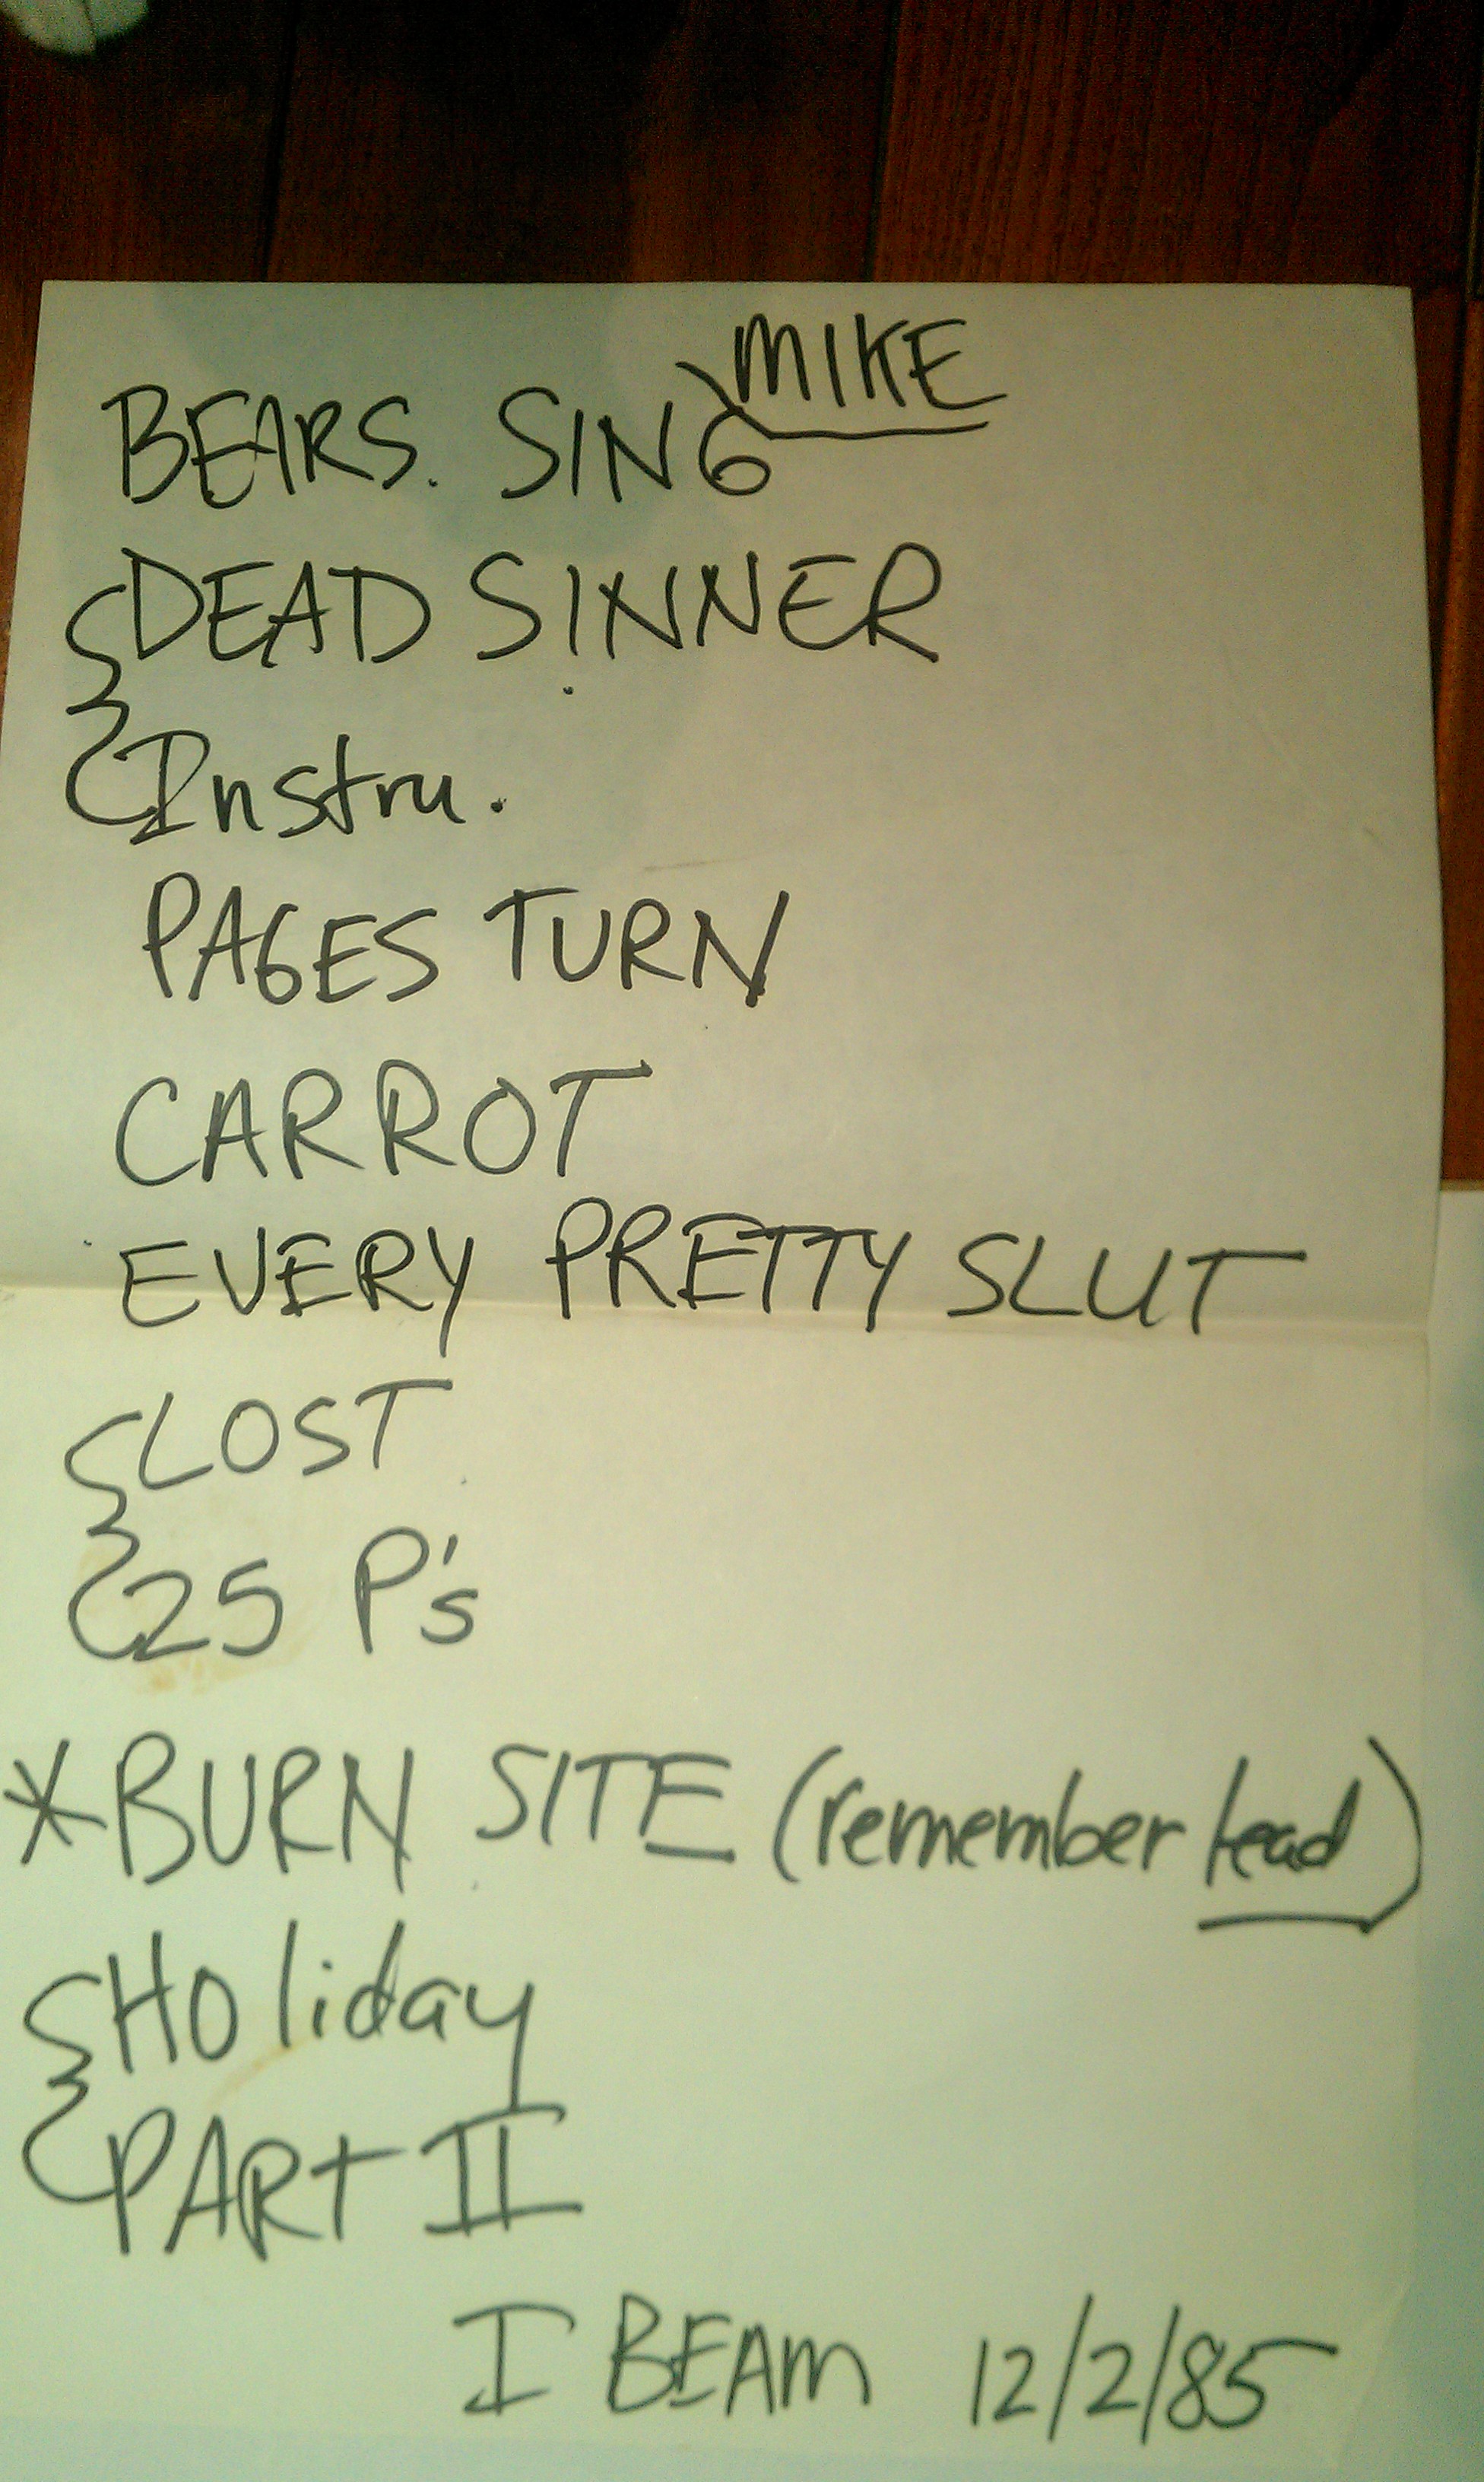 MIKE
BEARS. SING
DEAD SINNER
Instru.
PAGES TURN
CARROT
EVERY PRETTY SLUT
LOST
25 P's
*BURN SITE (remember lead)
Holiday
PART II
I BEAM 12/2/85